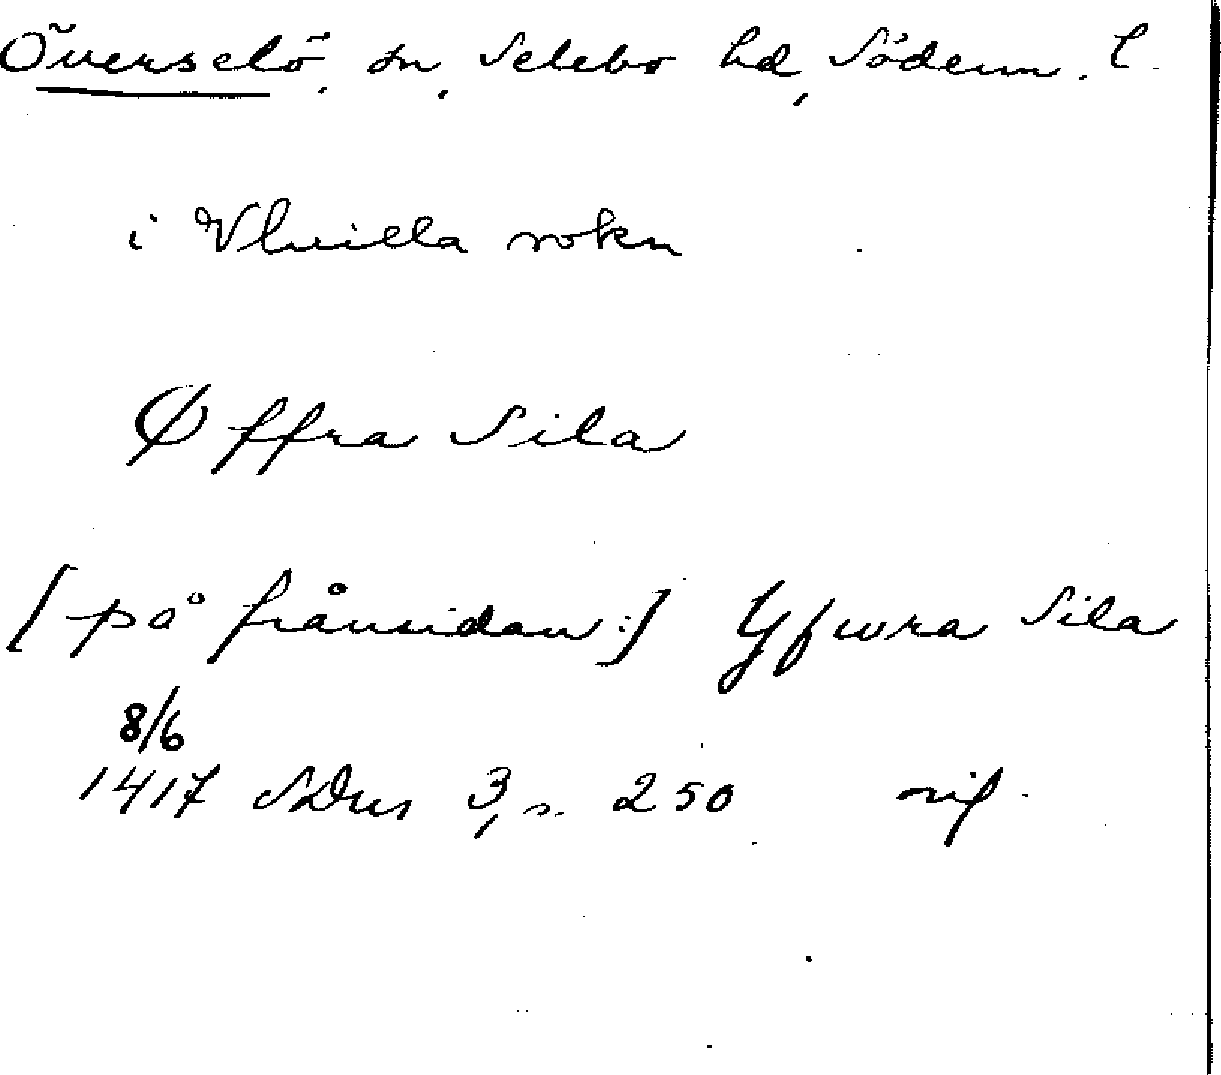 Överselö, sn, Selebo hd, Söderm. l.
i Vluilla sokn
Øffra Sila
[på frånsidan:] Yfwra Sila
8/6
1417 SDns 3, s. 250 orig.